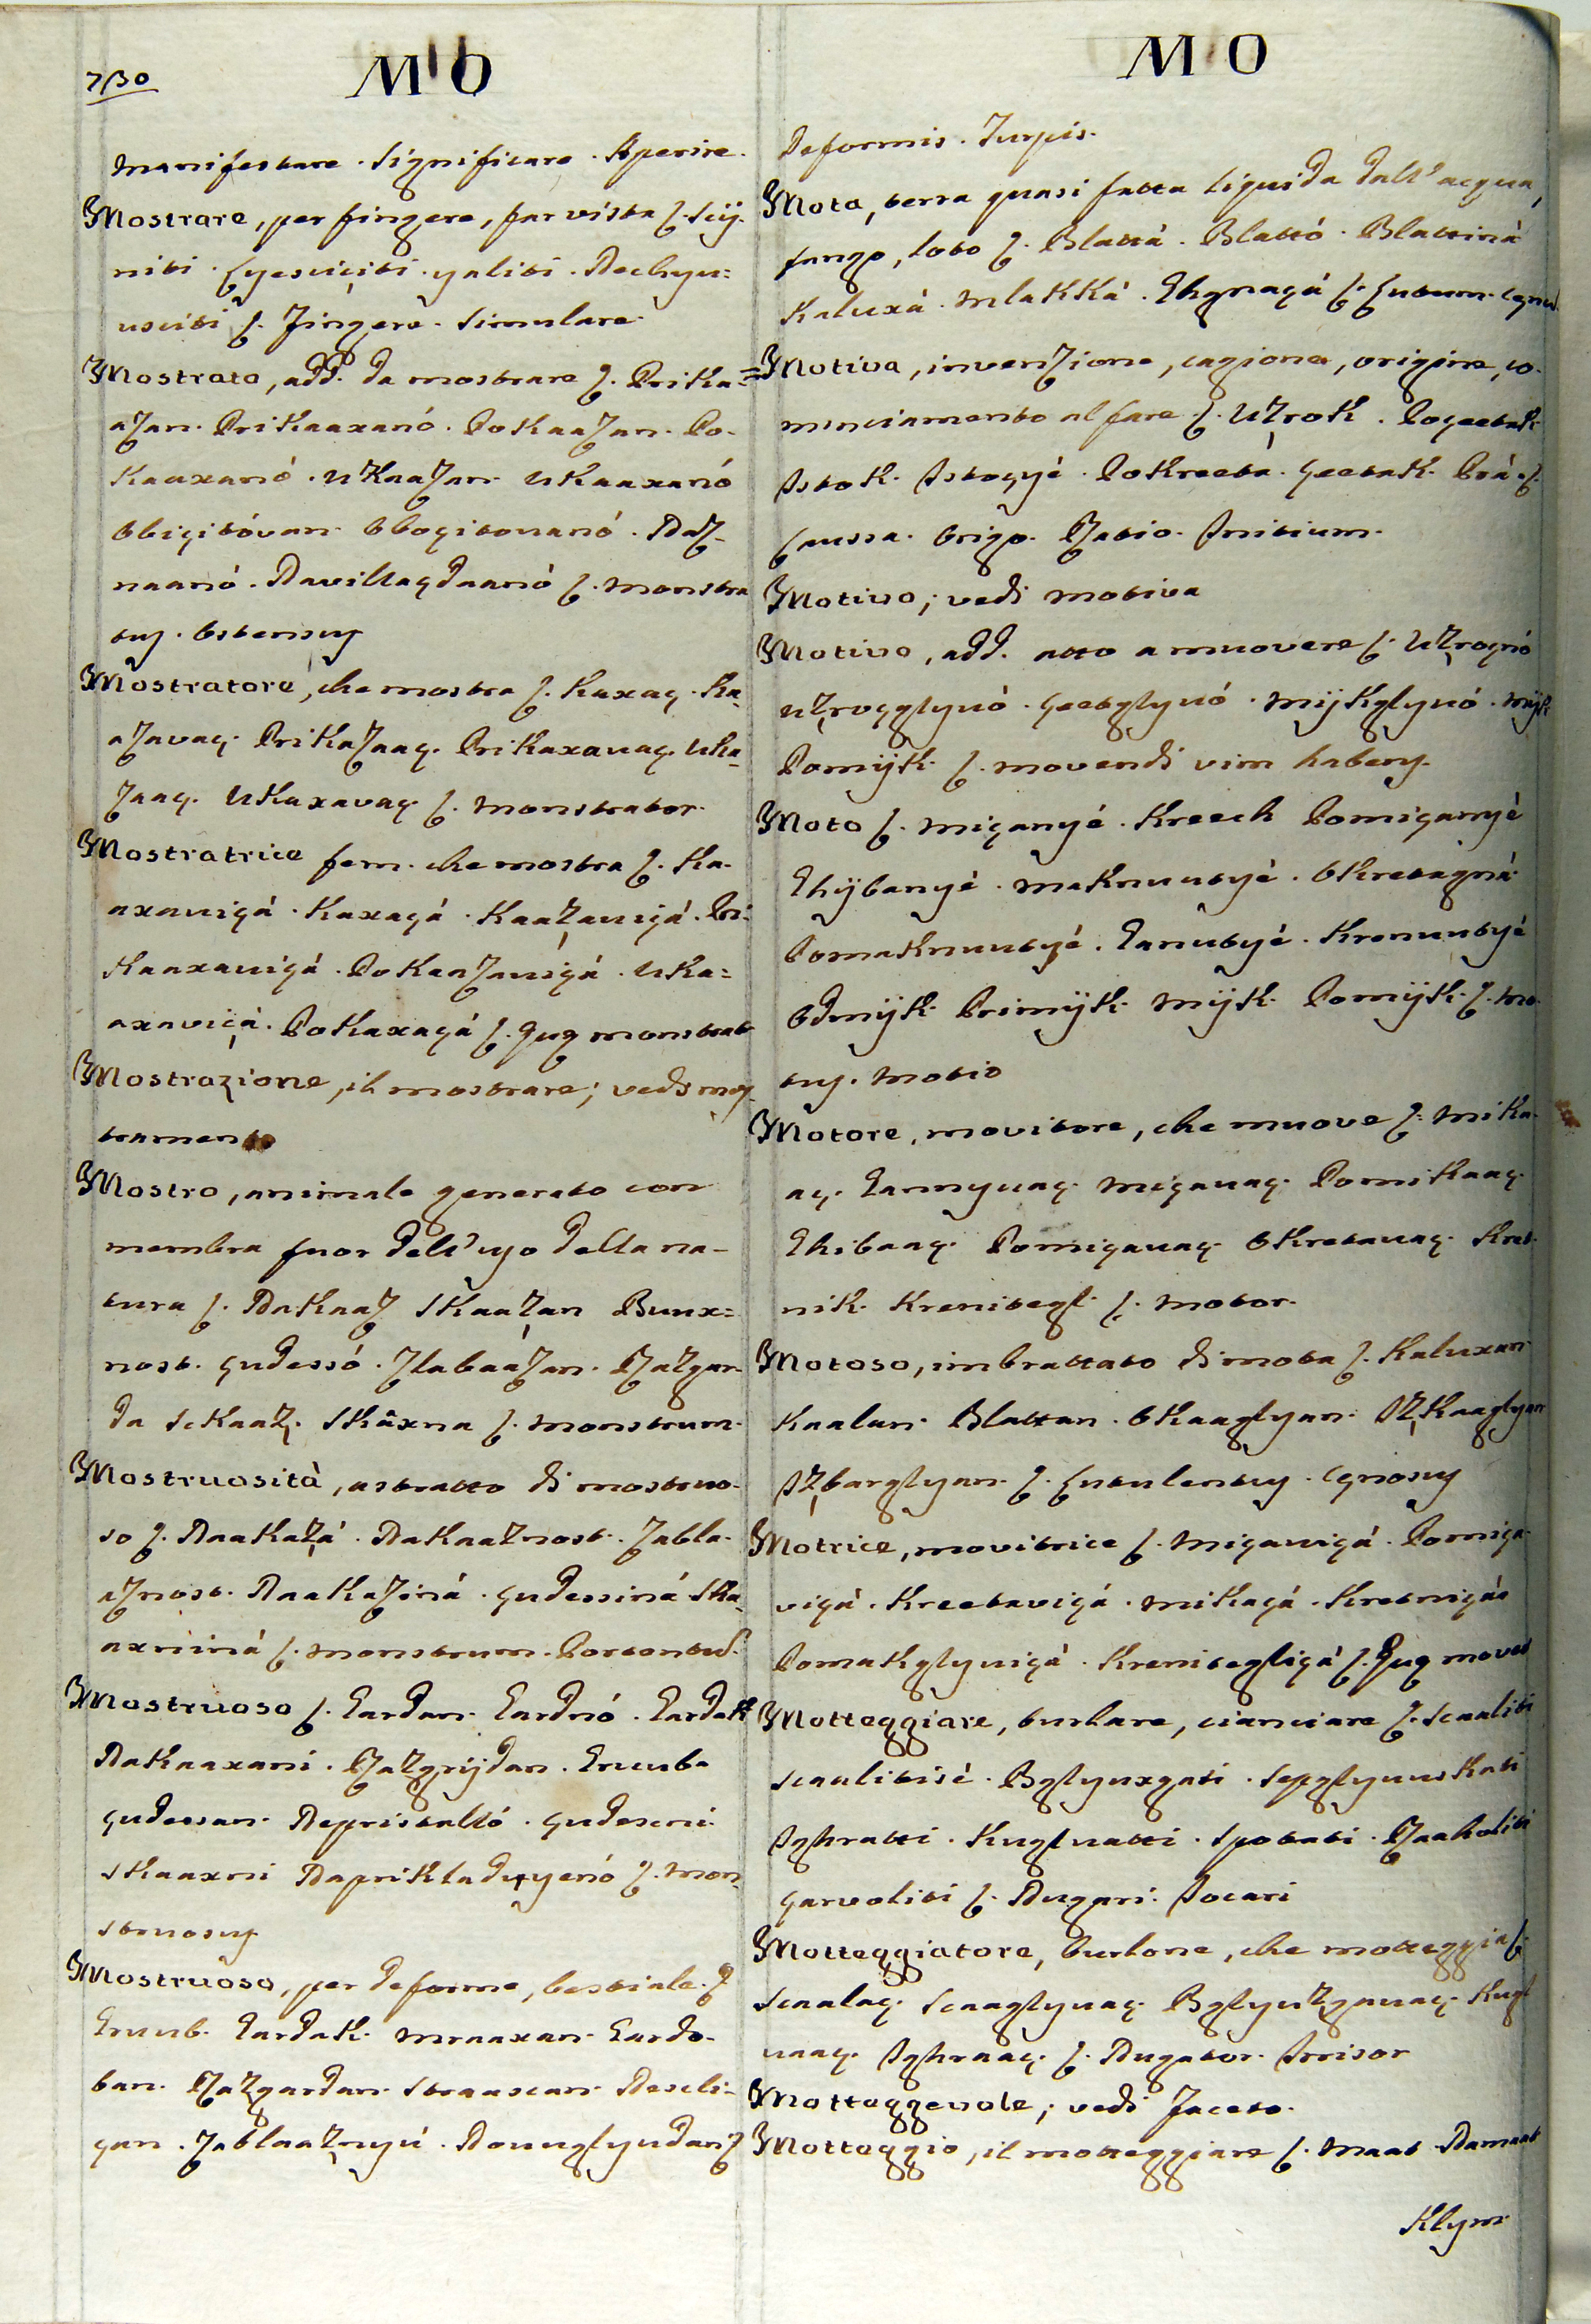 730
MO
manifestare. Significare. Aperire.
Mostrare, per fingere, far vista ſ. Sciÿ-
niti. Cyesviçiti. yaliti. Nechyu=
usciti ſ. Fingere. Simulare.
Mostrato, add. da mostrare ſ. Prika=
aZan. Prikaaxanó. PokaaZan. Po-
kaaxanó. UkaaZan. Ukaaxanó
Obiçitóvan. Oboçitovanó. NaZ-
naanó. Navillaçdaanó ſ. Monstra
tus. Ostensus
Mostratore, che mostra ſ. Kaxaç. Ka-
aZavaç. PrikaZaaç. Prikaxavaç. Uka-
Zaaç. Ukaxavaç ſ. Monstrator.
Mostratrice fem. che mostra ſ. Ka-
axaviçá. Kaxaçá. KaaZaviçá. Pri-
kaaxaviçá. PokaaZaviçá. Uka=
axaviçá. Pokaxaçá ſ. Quę monstrat
Mostrazione, il mostrare; vedi mos-
tramento
Mostro, animale generato con
membra fuor dell'uso della na-
tura ſ. NakaaZ SkaaZan Buux=
nost. çudessó. ZlabaaZan. RaZgar-
da SckaaZ. Skâxna ſ. Monstrum.
Mostruosità, astratto di mostruo-
so ſ. NaakaZá. NakaaZnost. Zabla-
aZnost. NaakaZiná. çudessiná Ska-
axniná ſ. Monstrum. Portentum.
Mostruoso ſ. Gardan. Gardnó. Gardak
Nakaaxani. RaZgrijdan. Gruuba
çudessan. Nepristalló. çudesni
Skaaxni Naprikladuyenó ſ. Mon-
struosus
Mostruoso, per deforme, bestiale. ſ
Gruub. Gardak. Mraaxan. Gardo-
ban. RaZgardan. Straascan. Nescli-
çan. ZablaaZnyú. Nouuglyudan ſ
MO
Deformis. Turpis.
Mota, terra quasi fatta liquida dall'acqua,
fango, loto ſ. Blattá. Blattó. Blattiná
Kaluxá. Mlakká. Ghgnaçá ſ. Lutum. Cęnum
Motiva, invenzione, cagione, origine, co-
minciamento al fare ſ. UZrok. Poçeetak
Istok. Istoçyé. Pokreetá. çeetak. Prá. ſ.
Caussa. Origo. Ratio. Initium.
Motivo; vedi motiva
Motivo, add. atto a muovere ſ. UZroçnó
uZroçglyvó. çeetglyvó. Mijkglyvó. Mijk
Pomijk ſ. movendi vim habens.
Moto ſ. Miçanyé. Kreech Pomiçanyé
Ghÿbanyé. Maknuutyé. Okretagná
Pomaknuutyé. Ganutyé. Krenuutyé
Odmijk Primijk Mijk Pomijk ſ. Mo-
tus. Motio
Motore, movitore, che muove ſ. Mika-
aç. Gannyvaç. Miçavaç. Pomikaaç.
Ghibaaç. Pomiçavaç. Okretavaç. Kret-
nik. Krenitegl ſ. Motor.
Motoso, imbrattato di mota ſ. Kaluxan
Kaalan. Blattan. Okaaglyan. IZkaaglyan
IZbarglyan ſ. Lutulentus. Cęnosus
Motrice, movitrice ſ. Miçaviçá. Pomiça-
viçá. Kreetaviçá. Mikaçá. Kretniçáa
Pomakglyviçá. Krenitegliçá ſ. Quę movet
Motteggiare, burlare, cianciare ſ. Scaaliti
Scaalitisè. Bglyuxgati. Sepglyuuskati
Ighratti. Kugluatti. Spotati. Raakoliti
çarvoliti ſ. Nugari. Iocari
Motteggiatore, burlone, che motteggia ſ.
Scaalaç. Scaaglyvaç. BglyuZgavaç. Kugl
uaaç. Ighraaç. ſ. Nugator. Irrisor
Motteggevole; vedi Faceto.
Motteggio, il motteggiare ſ. Maat. Namaat
Klym